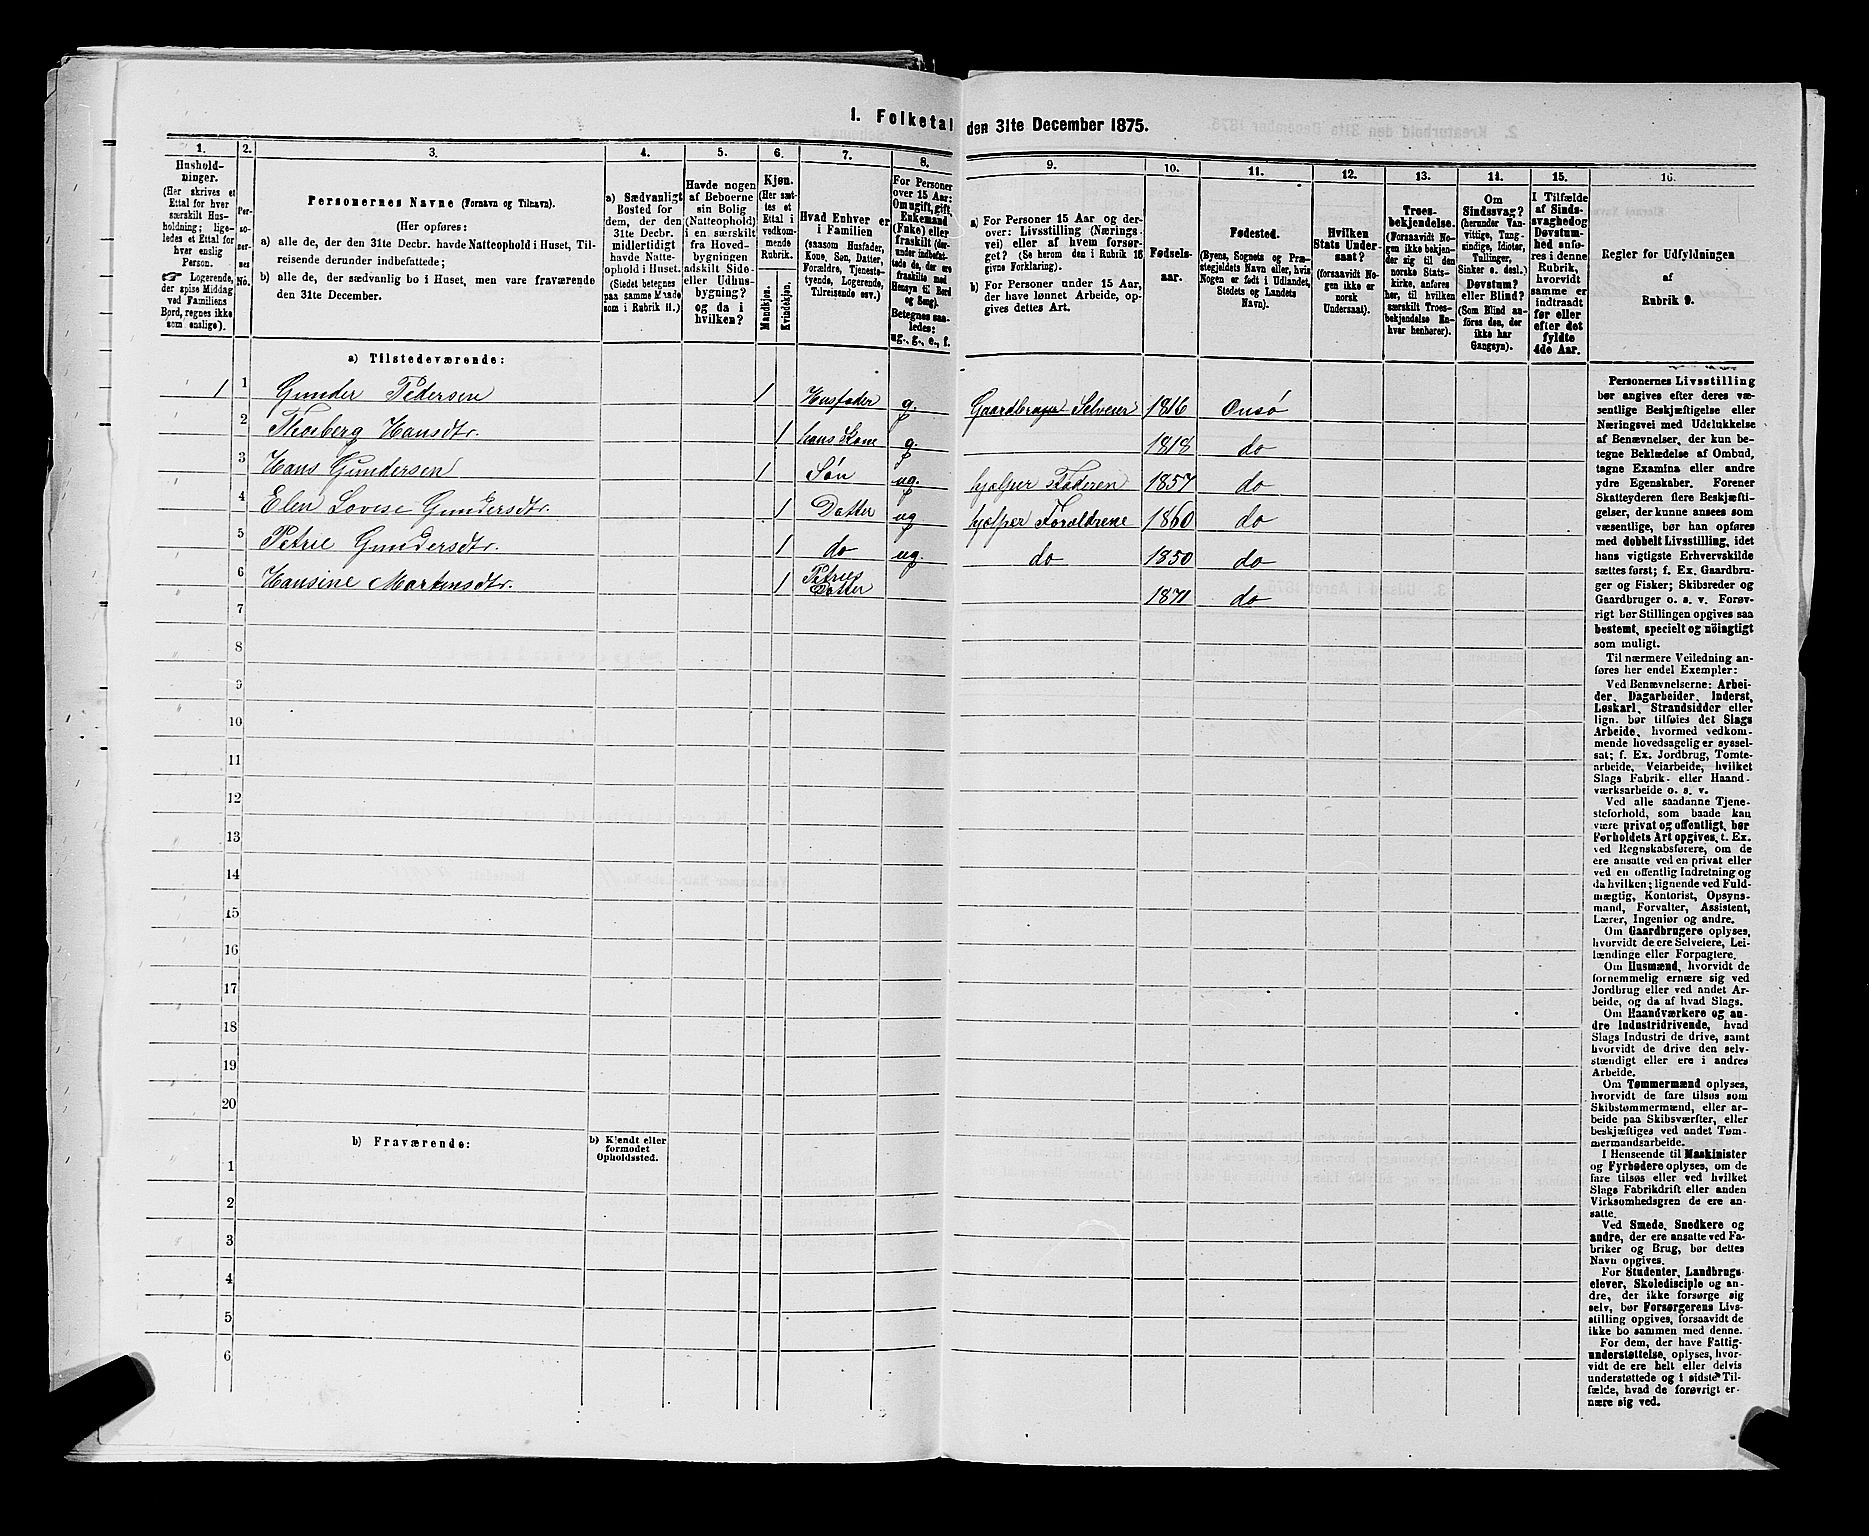 1. Folketal den 31te December 1875.
1. 2. 3. 4. 5. 6. 7. 8. 9. 10. 11. 12. 13. 14. 15. 16.
Hushold-
ninger.
(Her skrives et
Ettal for hver
særskilt Hus-
holdning; lige-
ledes et Ettal for
hver enslig
Person.
☞ Logerende,
der spise Middag
ved Familiens
Bord, regnes ikke
som enslige).
Per-
so-
ner-
nes
No.
Personernes Navne (Fornavn og Tilnavn).
(Her opføres:
a) alle de, der den 31te Decbr. havde Natteophold i Huset, Til-
reisende derunder indbefattede;
b) alle de, der sædvanlig bo i Huset, men vare fraværende
den 31te December.
a) Sædvanligt
Bosted for
dem, der den
31te Decbr.
midlertidigt
havde Natte-
ophold i Huset.
(Stedet betegnes
paa samme Maade
som i Rubrik 11.)
Havde nogen
af Beboerne
sin Bolig
(Natteophold)
i en særskilt
fra Hoved-
bygningen
adskilt Side-
eller Udhus-
bygning?
og da i
hvilken?
Kjøn.
(Her sæt-
tes et
Ettal i
vedkom-
mende
Rubrik.
Mandkjøn.
Kvindekjøn.
Hvad Enhver er
i Familien
(saasom Husfader,
Kone, Søn, Datter,
Forældre, Tjeneste-
tyende, Logerende,
Tilreisende osv.)
For Personer
over 15 Aar:
Om ugift, gift,
Enkemand
(Enke) eller
fraskilt (der-
under indbefat-
tede de, der ere
fraskilte med
Hensyn til Bord
og Seng).
Betegnes saa-
ledes:
ug., g., e., f.
a) For Personer 15 Aar og der-
over: Livsstilling (Nærings-
vei) eller af hvem forsør-
get? (Se herom den i Rubrik 16
givne Forklaring).
b) For Personer under 15 Aar,
der have lønnet Arbeide, op-
gives dettes Art.
Fødsels-
aar.
Fødested.
(Byens, Sognets og Præ-
stegjeldets Navn eller, hvis
Nogen er født i Udlandet,
Stedets og Landets
Navn).
Hvilken
Stats Under-
saat?
(forsaavidt No-
gen ikke er
norsk
Undersaat).
Troes-
bekjendelse.
(Forsaavidt No-
gen ikke bekjen-
der sig til den
norske Stats-
kirke, anføres
her, til hvilken
særskilt Troes-
bekjendelse En-
hver henhører).
Om
Sindssvag?
(herunder Van-
vittige, Tung-
sindige, Idioter,
Tullinger,
Sinker o. desl.)
Døvstum?
eller Blind?
(Som Blind an-
føres den, der
ikke har
Gangsyn).
I Tilfælde
af Sinds-
svaghed og
Døvstum-
hed anfø-
res i denne
Rubrik,
hvorvidt
samme er
indtraadt
før eller
efter det
fyldte
4de Aar.
Regler for Udfyldningen
af
Rubrik 9.
a) Tilstedeværende:
1 1 Gunder Pedersen 1 Husfader g. Gaardbruger Selveier 1816 Onsø
2 Thorberg Hansdtr. 1 hans Kone g 1818 do
3 Hans Gundersen 1 Søn ug. hjælper Faderen 1857 do
4 Elen Lovise Gundersdtr. 1 Datter ug hjælper Forældrene 1860 do
5 Petrie Gundersdtr. 1 do ug. do 1850 do
6 Hansine Martinsdtr. 1 Petries Datter 1871 do
7
8
9
10
11
12
13
14
15
16
17
18
19
20
b) Fraværende:
b) Kjendt eller
formodet
Opholdssted.
1
2
3
4
5
6
Personernes Livsstilling
bør angives efter deres væ-
sentlige Beskjæftigelse eller
Næringsvei med Udelukkelse
af Benævnelser, der kun be-
tegne Beklædelse af Ombud,
tagne Examina eller andre
ydre Egenskaber. Forener
Skatteyderen flere Beskjæfti-
gelser, der kunne ansees som
væsentlige, bør han opføres
med dobbelt Livsstilling, idet
hans vigtigste Erhvervskilde
sættes først; f. Ex. Gaardbru-
ger og Fisker; Skibsreder og
Gaardbruger o. s. v. Forøv-
rigt bør Stillingen opgives saa
bestemt, specielt og nöiagtigt
som muligt.
Til nærmere Veiledning an-
føres her endel Exempler:
Ved Benævnelserne: Arbei-
der, Dagarbeider, Inderst,
Løskarl, Strandsidder eller
lign. bør tilføies det Slags
Arbeide, hvormed vedkom-
mende hovedsagelig er syssel-
sat; f. Ex. Jordbrug, Tomte-
arbeide, Veiarbeide, hvilket
Slags Fabrik- eller Haand-
værksarbeide o. s. v.
Ved alle saadanne Tjene-
steforhold, som baade kan
være privat og offentligt, bør
Forholdets Art opgives, t. Ex.
ved Regnskabsførere, om de
ere ansatte ved en privat eller
ved en offentlig Indretning og
da hvilken; lignende ved Fuld-
mægtig, Kontorist, Opsyns-
mand, Forvalter, Assistent,
Lærer, Ingeniør og andre.
Om Gaardbrugere oplyses,
hvorvidt de ere Selveiere, Lei-
lændinge eller Forpagtere.
Om Husmænd, hvorvidt de
fornemmelig ernære sig ved
Jordbrug eller ved andet Ar-
beide, og da af hvad Slags.
Om Haandværkere og an-
dre Industridrivende, hvad
Slags Industri de drive, samt
hvorvidt de drive den selv-
stændigt eller ere i andres
Arbeide.
Om Tømmermænd oplyses,
hvorvidt de fare tilsøs som
Skibstømmermænd, eller ar-
beide paa Skibsværfter, eller
beskjæftiges ved andet Tøm-
mermandsarbeide.
I Henseende til Maskinister
og Fyrbødere oplyses, om de
fare tilsøs eller ved hvilket
Slags Fabrikdrift eller anden
Virksomhedsgren de ere an-
satte.
Ved Smede, Snedkere og
andre, der ere ansatte ved Fa-
briker og Brug, bør dettes
Navn opgives.
For Studenter, Landbrugs-
elever, Skoledisciple og an-
dre, der ikke forsørge sig
selv, bør Forsørgerens Livs-
stilling opgives, forsaavidt de
ikke bo sammen med denne.
For dem, der have Fattig-
understøttelse, oplyses, hvor-
vidt de ere helt eller delvis
understøttede og i sidste Til-
fælde, hvad de forøvrigt er-
nære sig ved.